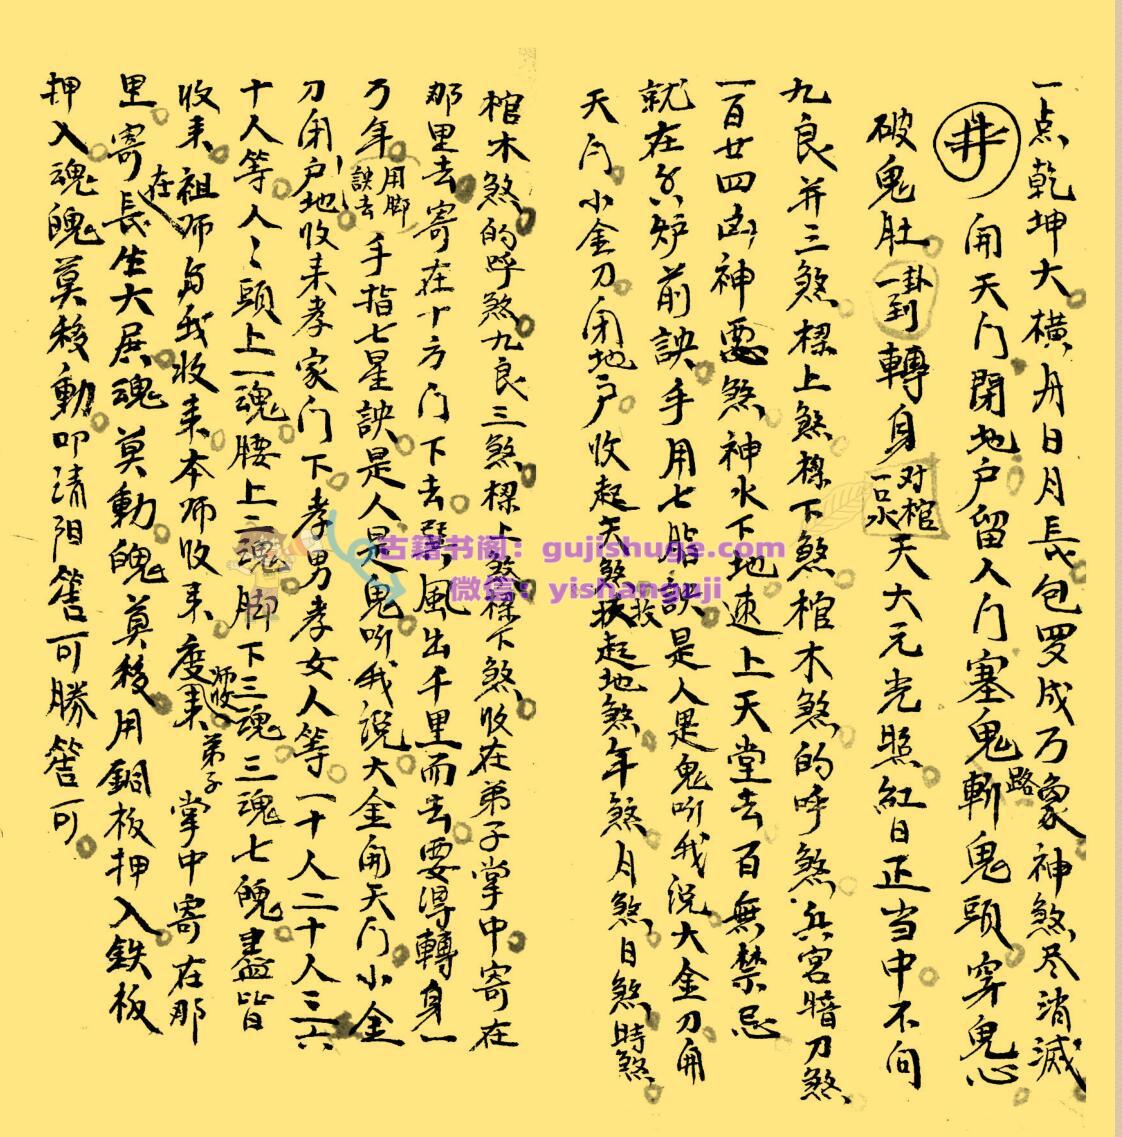 一点乾坤大横丹日月長包罗成万象神煞尽消滅
井 開天门閉地户留人门塞鬼路斬鬼頭穿鬼心
破鬼肚一卦到轉身对棺一口水天大元光照紅日正当中不向
九良并三煞樑上煞樑下煞棺木煞的呼煞兵宮暗刀煞
一百廿四凶神惡煞神水下地速上天堂去百無禁忌
就在炉前訣手用七脂訣是人是鬼听我说大金刀開
天门小金刀闭地户收起天煞收扶起地煞年煞月煞日煞時煞
棺木煞的呼煞九良三煞樑上煞樑下煞收在弟子掌中寄在
那里去寄在十方门下去驛風出千里而去要得轉身一
万年用脚訣去手指七星訣是人是鬼听我说大金開天门小金
刀闭户地收来孝家门下孝男孝女人等一十人二十人三六
十人等人々頭上一魂腰上二魂脚下三魂三魂七魄盡皆
收来祖师与我收来本师收来度师收来弟子掌中寄在那
里寄在長生大展魂莫動魄莫移用銅板押入鉄板
押入魂魄莫移動叩请阳筶可勝筶可
古籍书阁：gujishuge.com
微信：yishanguji